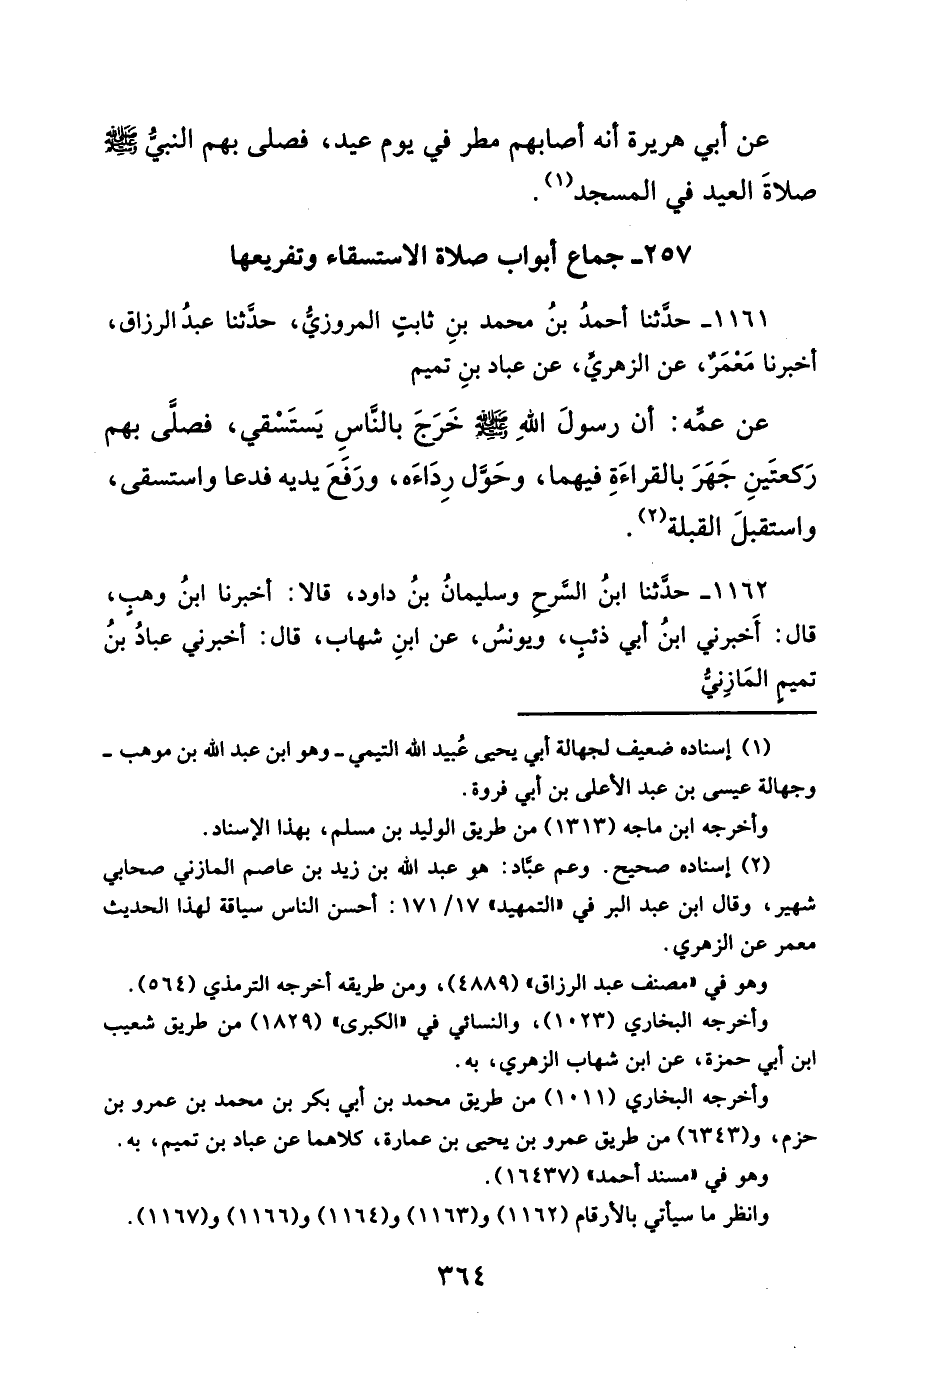 عن أبي هريرة أنه أصابهم مطر في يوم عيد، فصلى بهم النبيُّ ﷺ
صلاةَ العيد في المسجد(١).
٢٥٧ـ جماع أبواب صلاة الاستسقاء وتفريعها
١١٦١ـ حدَّثنا أحمدُ بنُ محمد بنِ ثابتٍ المروزيُّ، حدَّثنا عبدُ الرزاق،
أخبرنا مَعْمَرٌ، عن الزهريِّ، عن عباد بنِ تميم
عن عمِّه: أن رسولَ اللهِ ﷺ خَرَجَ بالنَّاسِ يَستَسْقي، فصلَّى بهم
رَكعتَينِ جَهَرَ بالقراءَةِ فيهما، وحَوَّل رِدَاءَه، ورَفَعَ يديه فدعا واستسقى،
واستقبلَ القبلة(٢).
١١٦٢ـ حدَّثنا ابنُ السَّرحِ وسليمانُ بنُ داود، قالا: أخبرنا ابنُ وهبٍ،
قال: أَخبرني ابنُ أبي ذئبٍ، ويونسُ، عن ابنِ شهاب، قال: أخبرني عبادُ بنُ
تميمٍ المَازِنيُّ
(١) إسناده ضعيف لجهالة أبي يحيى عُبيد الله التيمي ـ وهو ابن عبد الله بن موهب ـ
وجهالة عيسى بن عبد الأعلى بن أبي فروة.
وأخرجه ابن ماجه (١٣١٣) من طريق الوليد بن مسلم، بهذا الإسناد.
(٢) إسناده صحيح. وعم عبَّاد: هو عبد الله بن زيد بن عاصم المازني صحابي
شهير، وقال ابن عبد البر في «التمهيد» ١٧/ ١٧١: أحسن الناس سياقة لهذا الحديث
معمر عن الزهري.
وهو في «مصنف عبد الرزاق» (٤٨٨٩)، ومن طريقه أخرجه الترمذي (٥٦٤).
وأخرجه البخاري (١٠٢٣)، والنسائي في «الكبرى» (١٨٢٩) من طريق شعيب
ابن أبي حمزة، عن ابن شهاب الزهري، به.
وأخرجه البخاري (١٠١١) من طريق محمد بن أبي بكر بن محمد بن عمرو بن
حزم، و(٦٣٤٣) من طريق عمرو بن يحيى بن عمارة، كلاهما عن عباد بن تميم، به.
وهو في «مسند أحمد» (١٦٤٣٧).
وانظر ما سيأتي بالأرقام (١١٦٢) و(١١٦٣) و(١١٦٤) و(١١٦٦) و(١١٦٧).
٣٦٤